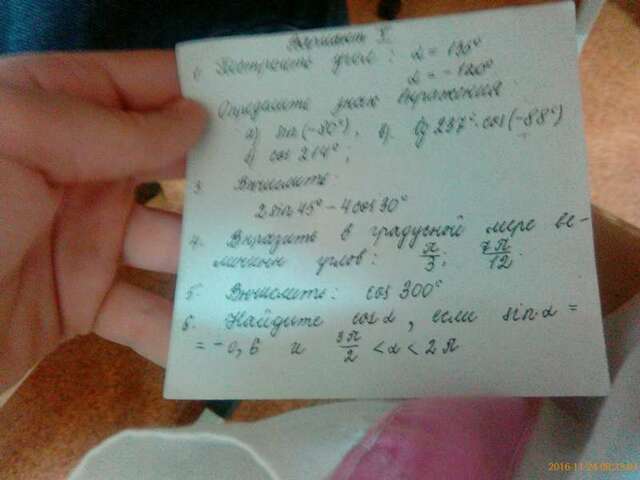 Вариант X.
1. Построить угол: α = 135°
α = -120°
Определите знак выражения
а) sin(-80°), в) tg 237°·cos(-88°)
б) cos 214°;
3. Вычислить:
2 sin 45° - 4 cos 30°
4. Выразить в градусной мере ве-
личины углов: π/3; 7π/12.
5. Вычислить: cos 300°
6. Найдите cos α, если sin α =
= -0,6 и 3π/2 < α < 2π
2016-11-24 08:33:04